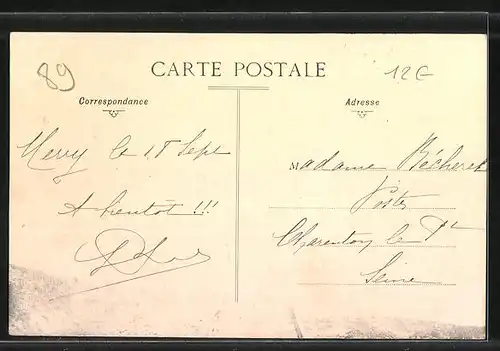 89
CARTE POSTALE
12E
Correspondance
Adresse
Merry le 18 Sept
A bientôt !!!
Madame Bécheret
Postes
Charenton le Pt
Seine